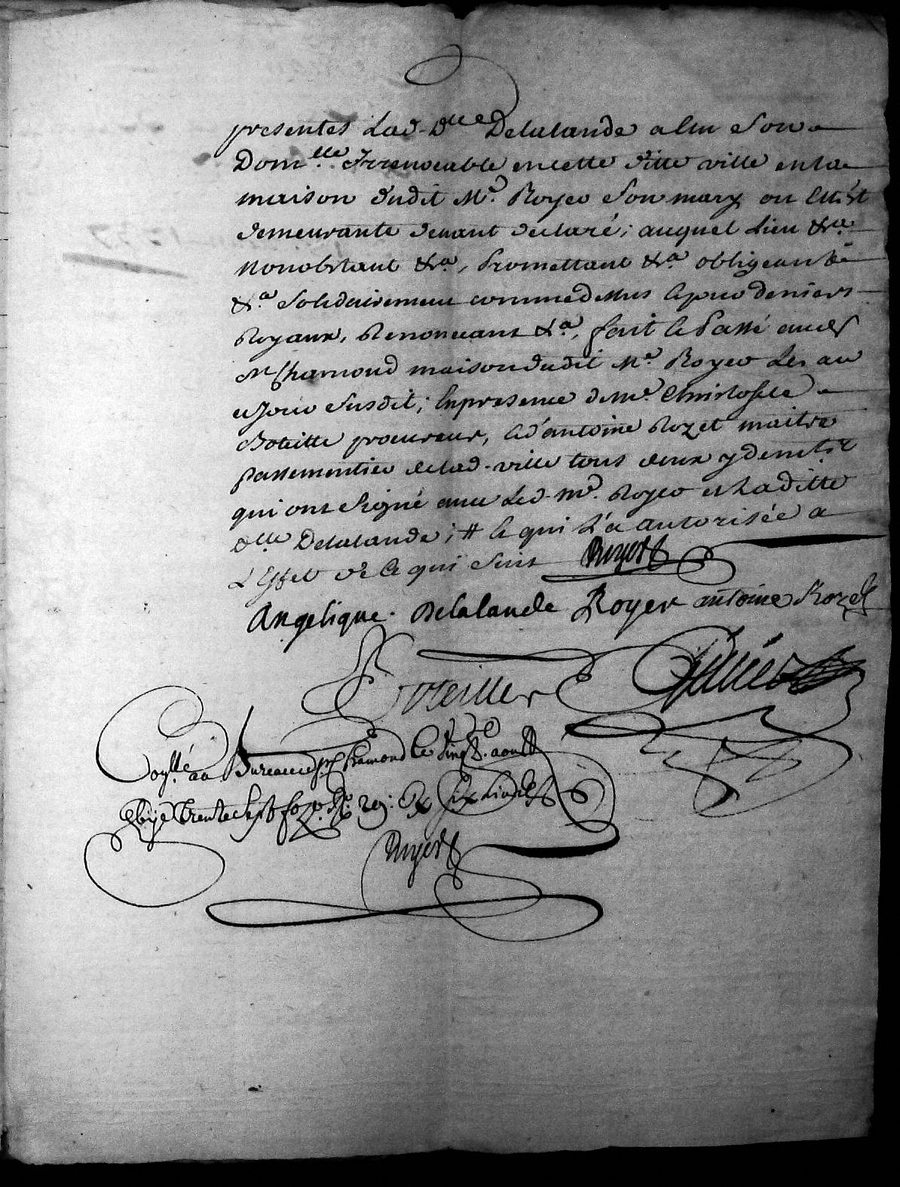 presentes Lad. Dlle Delalande a Elu Son
Domlle Irrevocable en cette ditte ville en la
maison dudit Mr. Royer Son mary ou Elle Est
demeurante devant declaré; auquel Lieu &ra
Nonobstant &a, Promettant &a obligeant &
&a Solidairement comme dessus Et pour deniers
Royaux, Renonceant &a, fait & Passé audt
St Chamond maison dudit Me. Royer Les an
& Jour Susdit; En presence de me. Christofle
Boteille procureur, & d'antoine Rozet maitre
passementier de lad. ville tous deux y demts
qui ont Signé avec Led. Mr. Royer et Laditte
Dlle Delalande; # Et qui L'a autorisée a
L'Effet de Ce qui Suit
Angelique. Delalande Royer antoine Rozet
Boteille

au Bureau de St Chamond le vingt. aoust
trente Sept fo. Six Livres